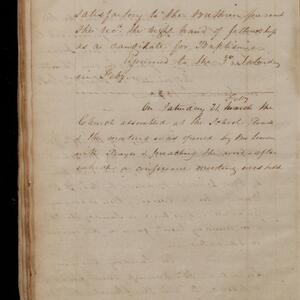 satisfactory to the Brethren present
She rec'd the right hand of fellowship
as a candidate for Baptism
Adjourned to the 3rd Saturday
in Feby.
Feby
On Saturday 21 March the
Church assembled at the School House
& the meeting was opened by
with Prayer & preaching the word after
which a conference meeting was held